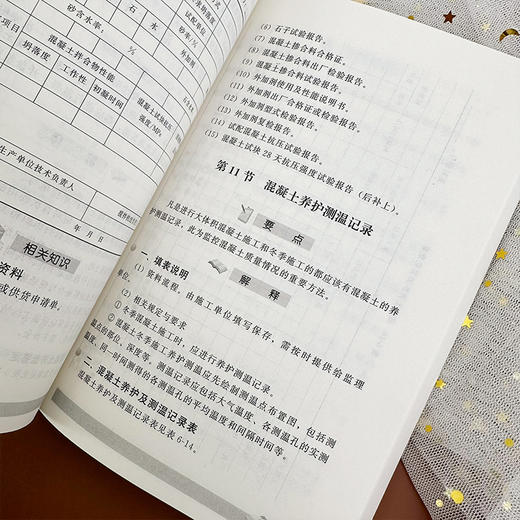 砂含水率,
%
石
水
砂率,
%
混凝土拌合物性能
坍落度
工作性
初凝时间
混凝土试块抗压
强度/MPa
生产单位技术负责人
年 月 日
相关知识
资料
或供货申请单。
(6) 石子试验报告。
(7) 混凝土掺合料合格证。
(8) 混凝土掺合料出厂检验报告。
(9) 混凝土掺合料试验报告。
(10) 外加剂使用及性能说明书。
(11) 外加剂出厂合格证或检验报告。
(12) 外加剂型式检验报告。
(13) 外加剂复检报告。
(14) 试配混凝土抗压试验报告。
(15) 混凝土试块 28 天抗压强度试验报告（后补上）。
第 11 节 混凝土养护测温记录
要 点
凡是进行大体积混凝土施工和冬季施工的都应该有混凝土的养
护测温记录，此为监控混凝土质量情况的重要方法。
解 释
一、填表说明
(1) 资料流程。由施工单位填写保存，需按时提供给监理
单位。
(2) 相关规定与要求
① 冬季混凝土施工时，应进行养护测温记录。
② 混凝土冬季施工养护测温应先绘制测温点布置图，包括测
温点的部位、深度等。测温记录应包括大气温度、各测温孔的实测
温度、同一时间测得的各测温孔的平均温度和间隔时间等。
二、混凝土养护及测温记录表
混凝土养护及测温记录表见表 6-14。